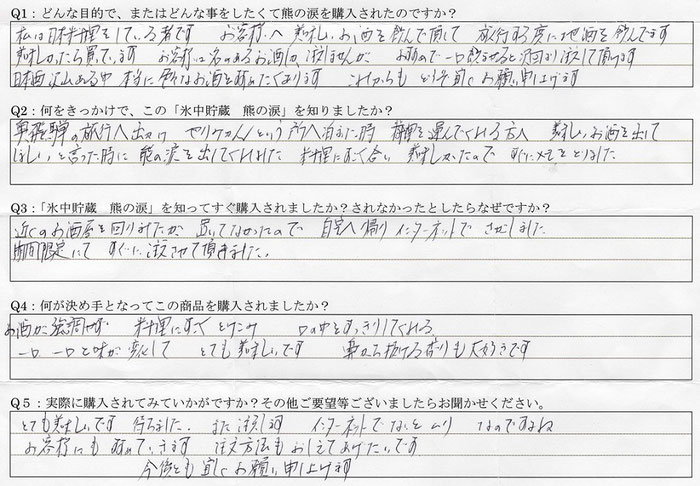 Q1：どんな目的で、またはどんな事をしたくて熊の涙を購入されたのですか？
私は日本料理をしている者です　お客様へ　美味しいお酒を飲んで頂して　旅行する度に地酒を飲んでます
美味しかったら買ています　お客様は名のあるお酒しか注しませんが　お奨めで一口飲ませると次回より注して頂けます
日本酒沢山ある中　本当に　なお酒を奨めたくあります　これからも　どうぞ宜しくお願い申し上げます
Q2：何をきっかけで、この「氷中貯蔵　熊の涙」を知りましたか？
奥飛騨の旅行へ出かけ　やりのかんという所へ泊また時　料理を運んでくれる方へ　美味しいお酒を出して
ほしいと言った時に　熊の涙を出してくれました　料理にすごく合い　美味しかったので　すぐにメモをとりました
Q3：「氷中貯蔵　熊の涙」を知ってすぐ購入されましたか？されなかったとしたらなぜですか？
近くのお酒屋を回りましたが　置いてなかったので　自宅へ帰り　インターネットで　さがしました
期間限定にて　すぐに注文させて頂きました。
Q4：何が決め手となってこの商品を購入されましたか？
お酒が強調せず　料理にすぐとけこみ　口の中をすっきりしてくれる
一口　一口と味が変化して　とても美味しいです　鼻から抜ける香りも大好きです
Q5：実際に購入されてみていかがですか？その他ご要望等ございましたらお聞かせください。
とても美味しいです　待ちました．また注文します　インターネットでないとムリ　なのですよね
お客様にも　奨めていきます　注文方法もおしえてあげたいです
今後とも宜しくお願い申し上げます